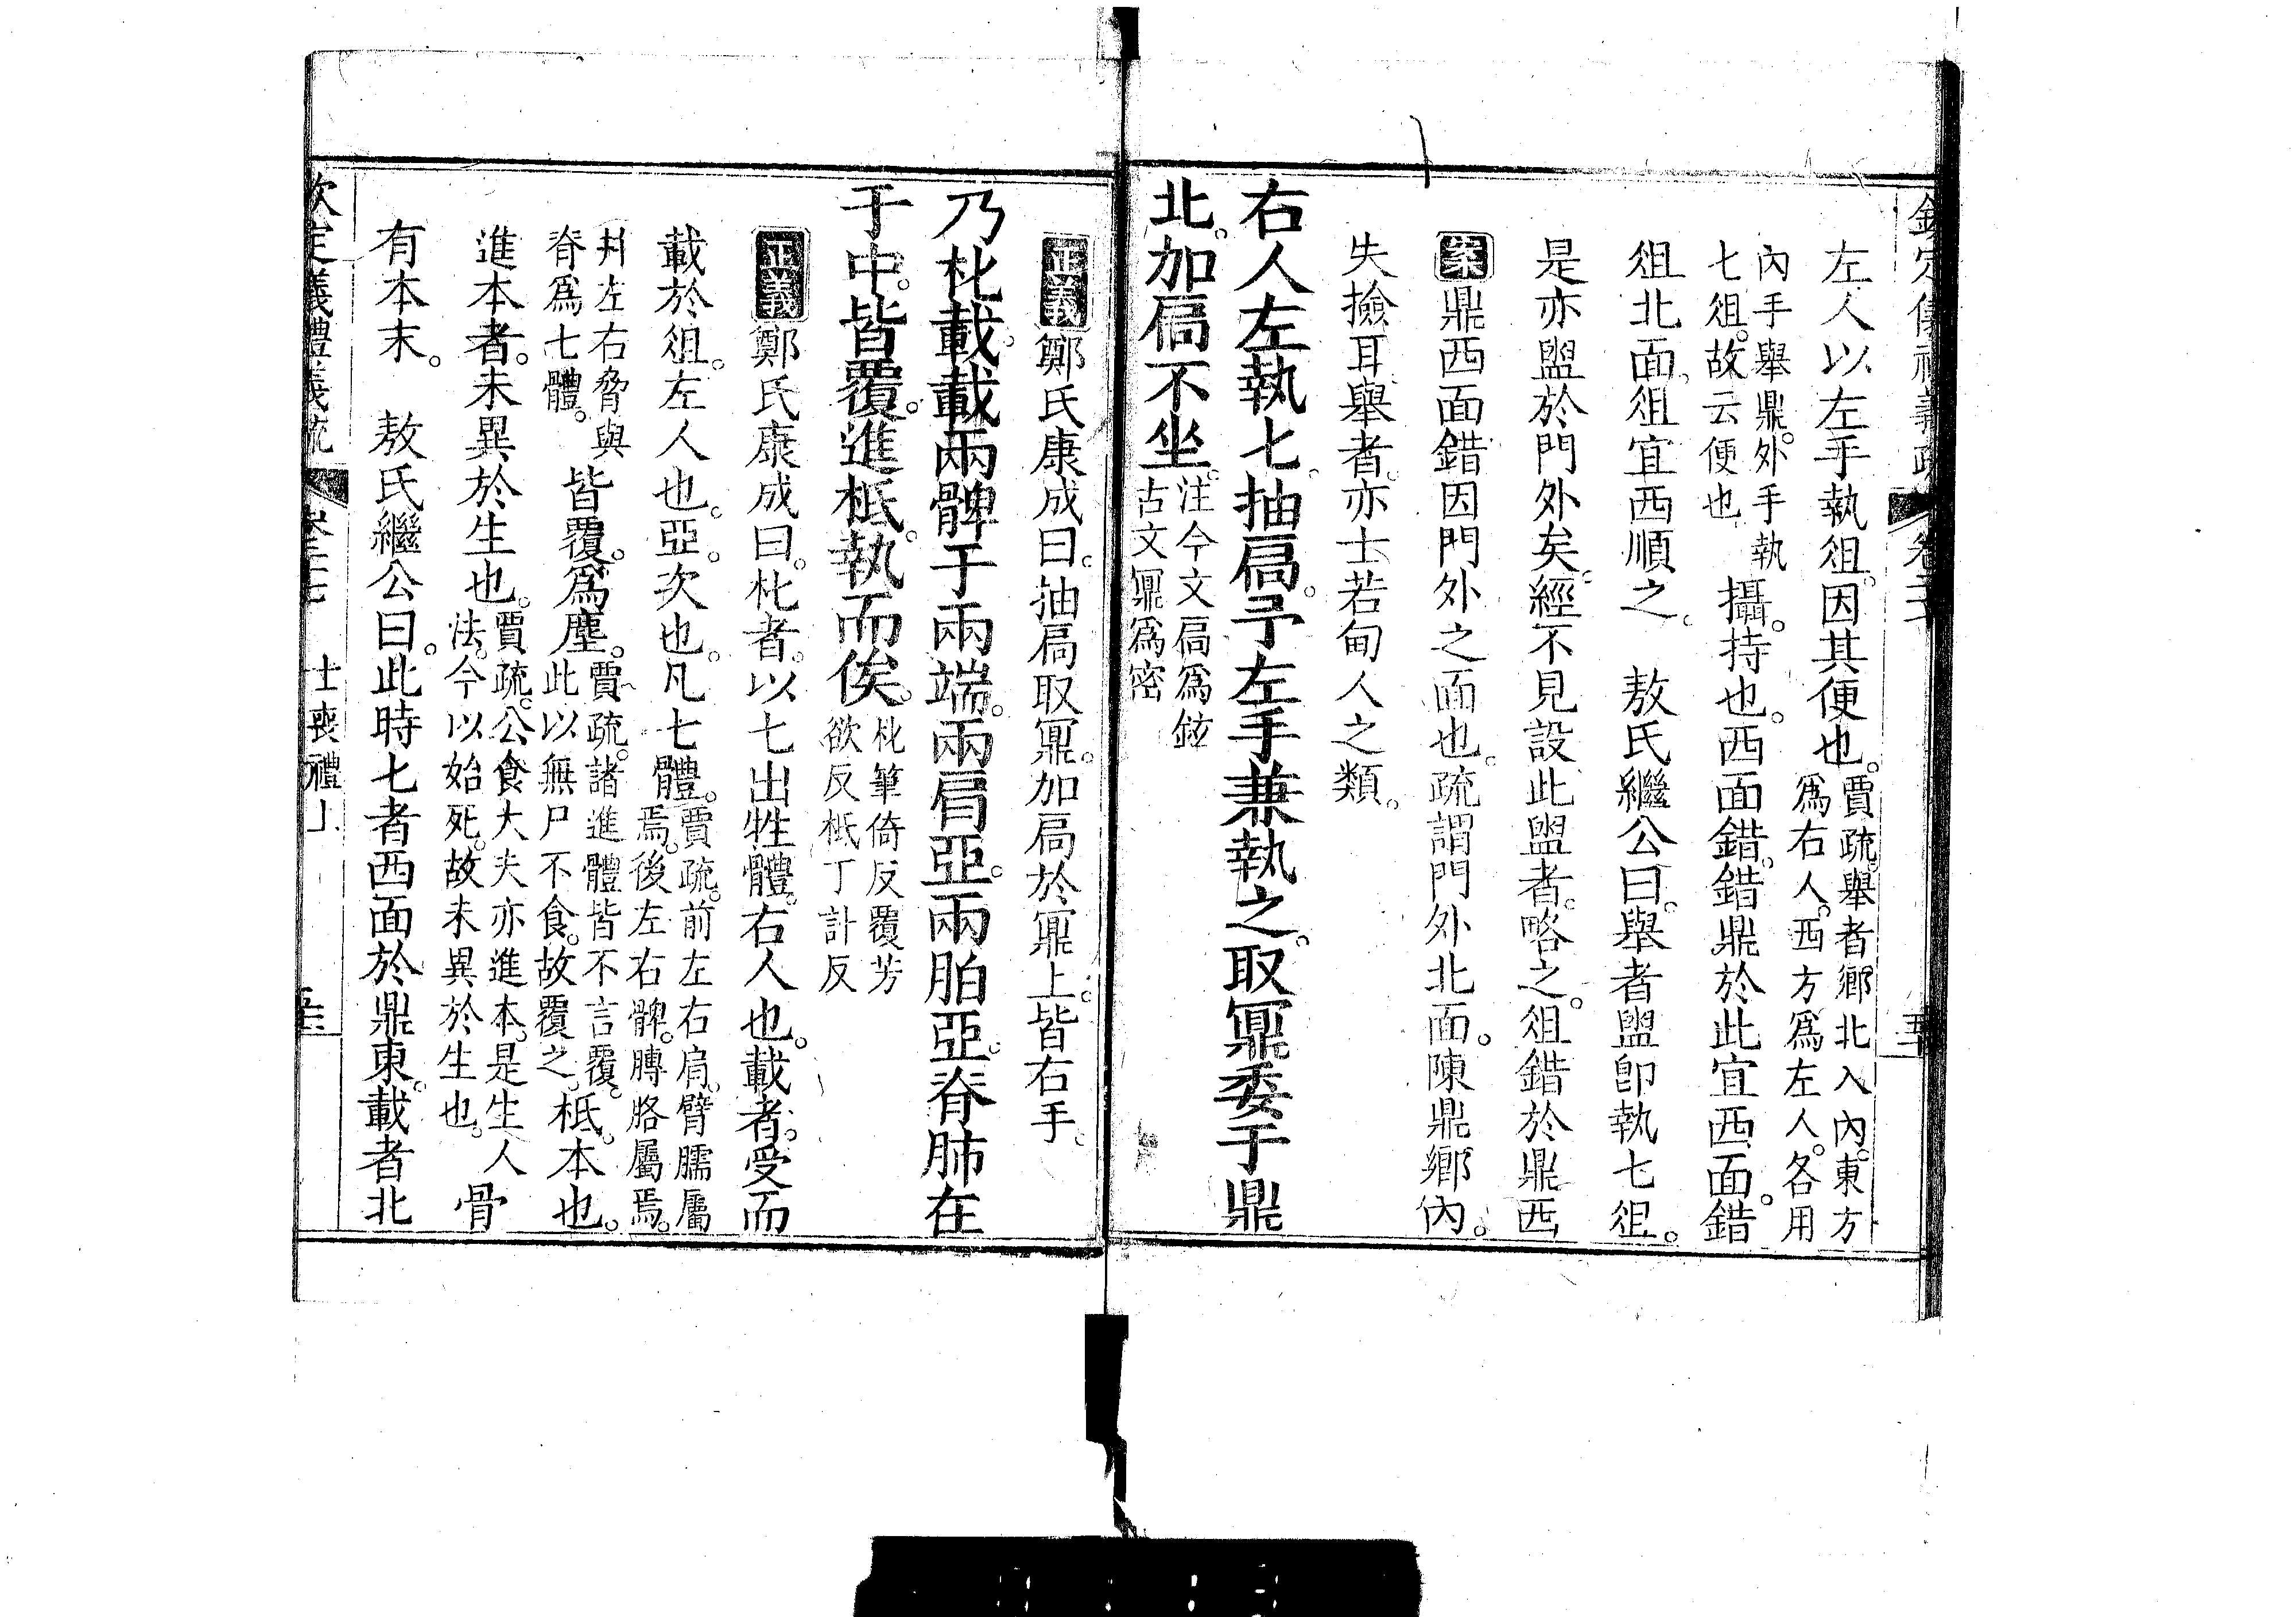 左人以左手執俎。因其便也。賈疏。舉者鄉北入內。東方
爲右人。西方爲左人。各用
內手舉鼎。外手執
七俎。故云便也
攝。持也。西面錯。錯鼎於此宜西面。錯
俎北面。俎宜西順之。　敖氏繼公曰。舉者盥卽執七俎。
是亦盥於門外矣。經不見設此盥者。略之。俎錯於鼎西
案鼎西面錯因門外之面也。疏謂門外北面。陳鼎鄉內。
失撿耳。舉者。亦士若甸人之類。
右人左執七。抽扃。予左手兼執之。取鼏委于鼎
北。加扃不坐。
注今文扃爲鉉
古文鼏爲密
正義鄭氏康成曰。抽扃取鼏。加扃於鼏上。皆右手。
乃朼載。載兩髀于兩端。兩肩亞。兩胉亞。脊肺在
于中。皆覆。進柢。執而俟。
朼筆倚反覆芳
欲反柢丁計反
正義鄭氏康成曰。朼者。以七出牲體。右人也。載者。受而
載於俎。左人也。亞。次也。凡七體。
賈疏。前左右肩。臂臑屬
焉。後左右髀。膊胳屬焉。
幷左右脅與
脊爲七體。
皆覆。爲塵。
賈疏。諸進體皆不言覆。
此以無尸不食。故覆之。
柢。本也。
進本者。未異於生也。
賈疏。公食大夫亦進本。是生人
法。今以始死。故未異於生也。
骨
有本末。　敖氏繼公曰。此時七者西面於鼎東。載者北
士喪禮